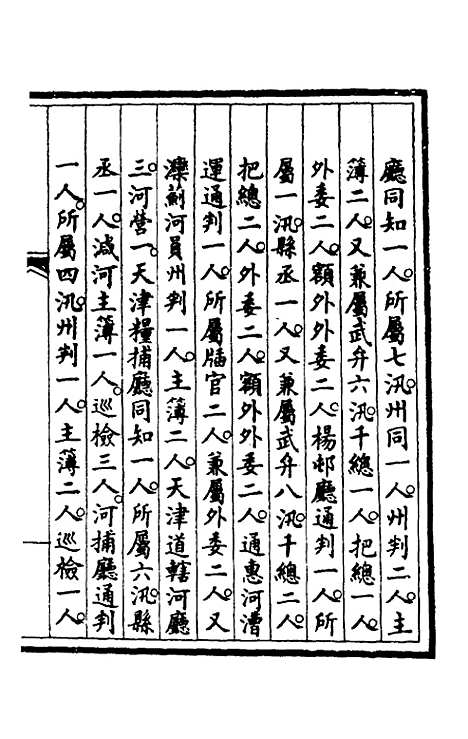 廳同知一人。所屬七汛。州同一人。州判二人。主
簿二人。又兼屬武弁六汛。千總一人。把總一人。
外委二人。額外外委二人。楊邨廳通判一人。所
屬一汛。縣丞一人。又兼屬武弁八汛。千總二人。
把總二人。外委二人。額外外委二人。通惠河漕
運通判一人。所屬牐官二人。兼屬外委二人。又
灤薊河員州判一人。主簿二人。天津道轄河廳
三。河營一。天津糧捕廳同知一人。所屬六汛。縣
丞一人。減河主簿一人。巡檢三人。河捕廳通判
一人。所屬四汛。州判一人。主簿二人。巡檢一人。